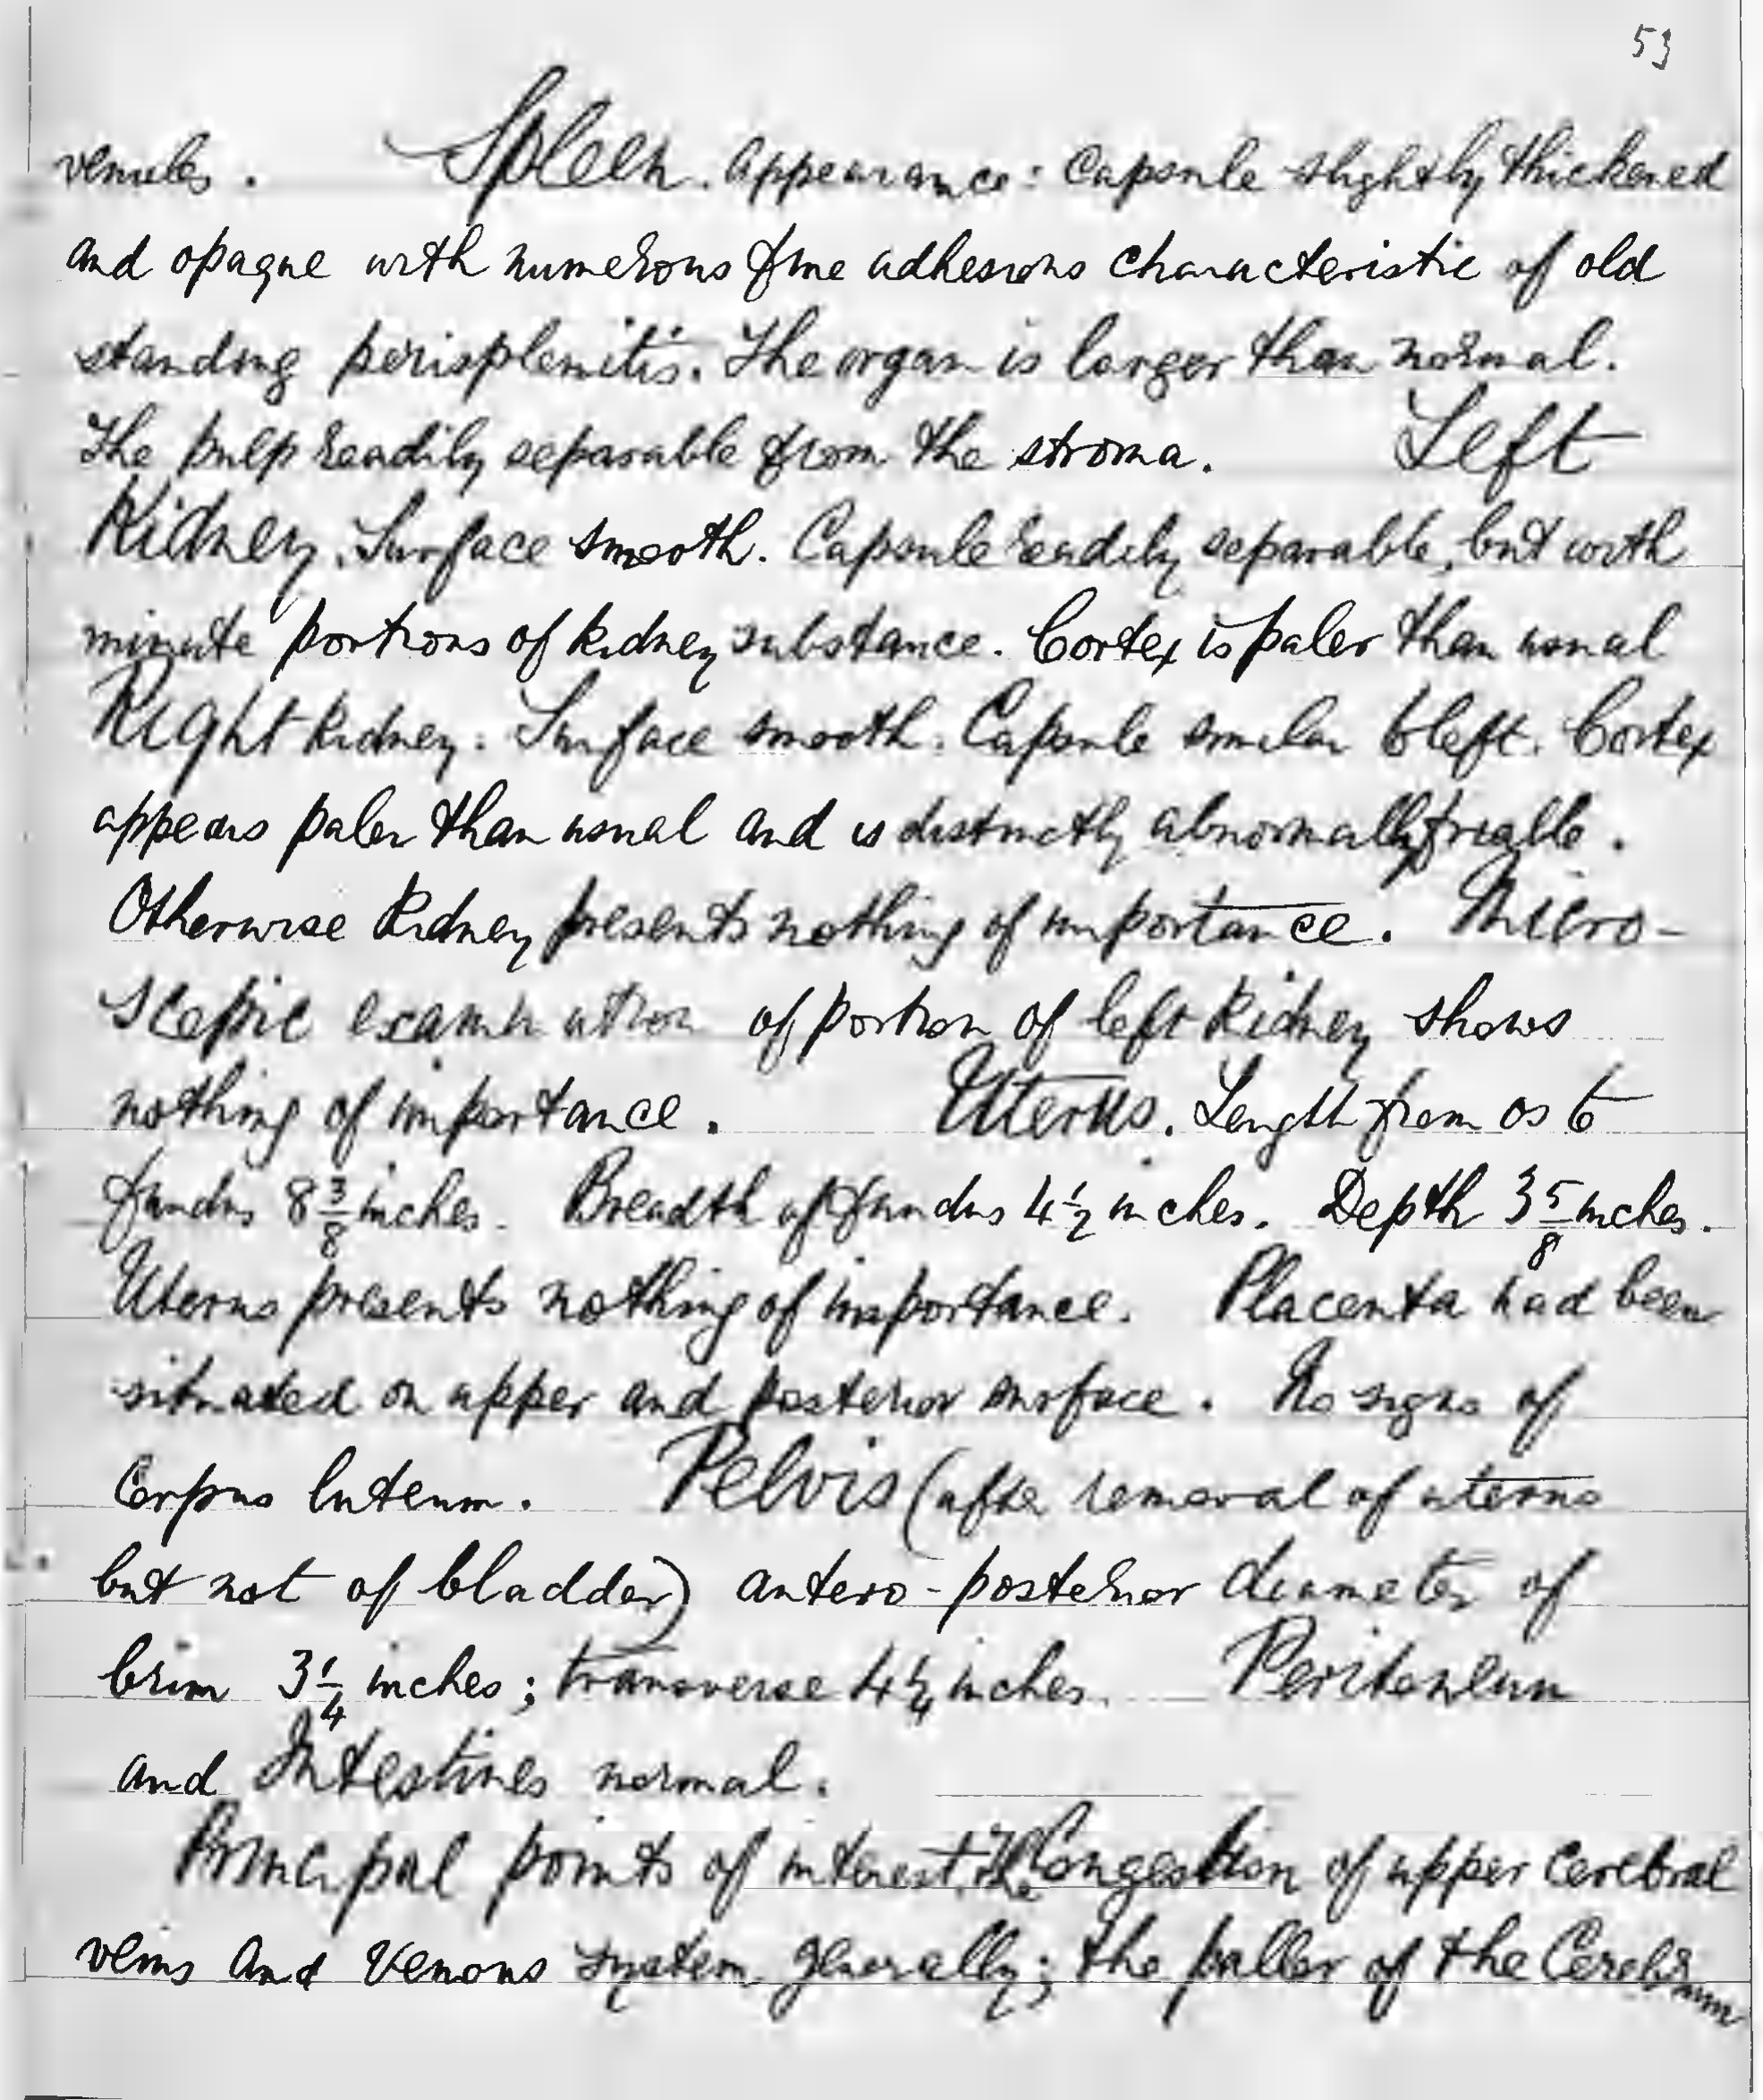 53
venules. Spleen. Appearance: Capsule slightly thickened
and opaque with numerous fine adhesions characteristic of old
standing perisplenitis. The organ is larger than normal.
The pulp readily separable from the stroma. Left
Kidney. Surface smooth. Capsule readily separable, but with
minute portions of kidney substance. Cortex is paler than usual
Right kidney: Surface smooth. Capsule similar to left. Cortex
appears paler than usual and is distinctly abnormally friable.
Otherwise kidney presents nothing of importance. Micro-
scopic examination of portion of left kidney shows
nothing of importance. Uterus. Length from os to
fundus 8 3/8 inches. Breadth of fundus 4 1/2 inches. Depth 3 5/8 inches.
Uterus presents nothing of importance. Placenta had been
situated on upper and posterior surface. No signs of
Corpus luteum. Pelvis (after removal of uterus
but not of bladder) antero-posterior diameter of
brim 3 1/4 inches; transverse 4 1/4 inches. Peritoneum
and Intestines normal.
Principal points of interest. The Congestion of upper cerebral
veins and venous system generally; the pallor of the Cerebrum